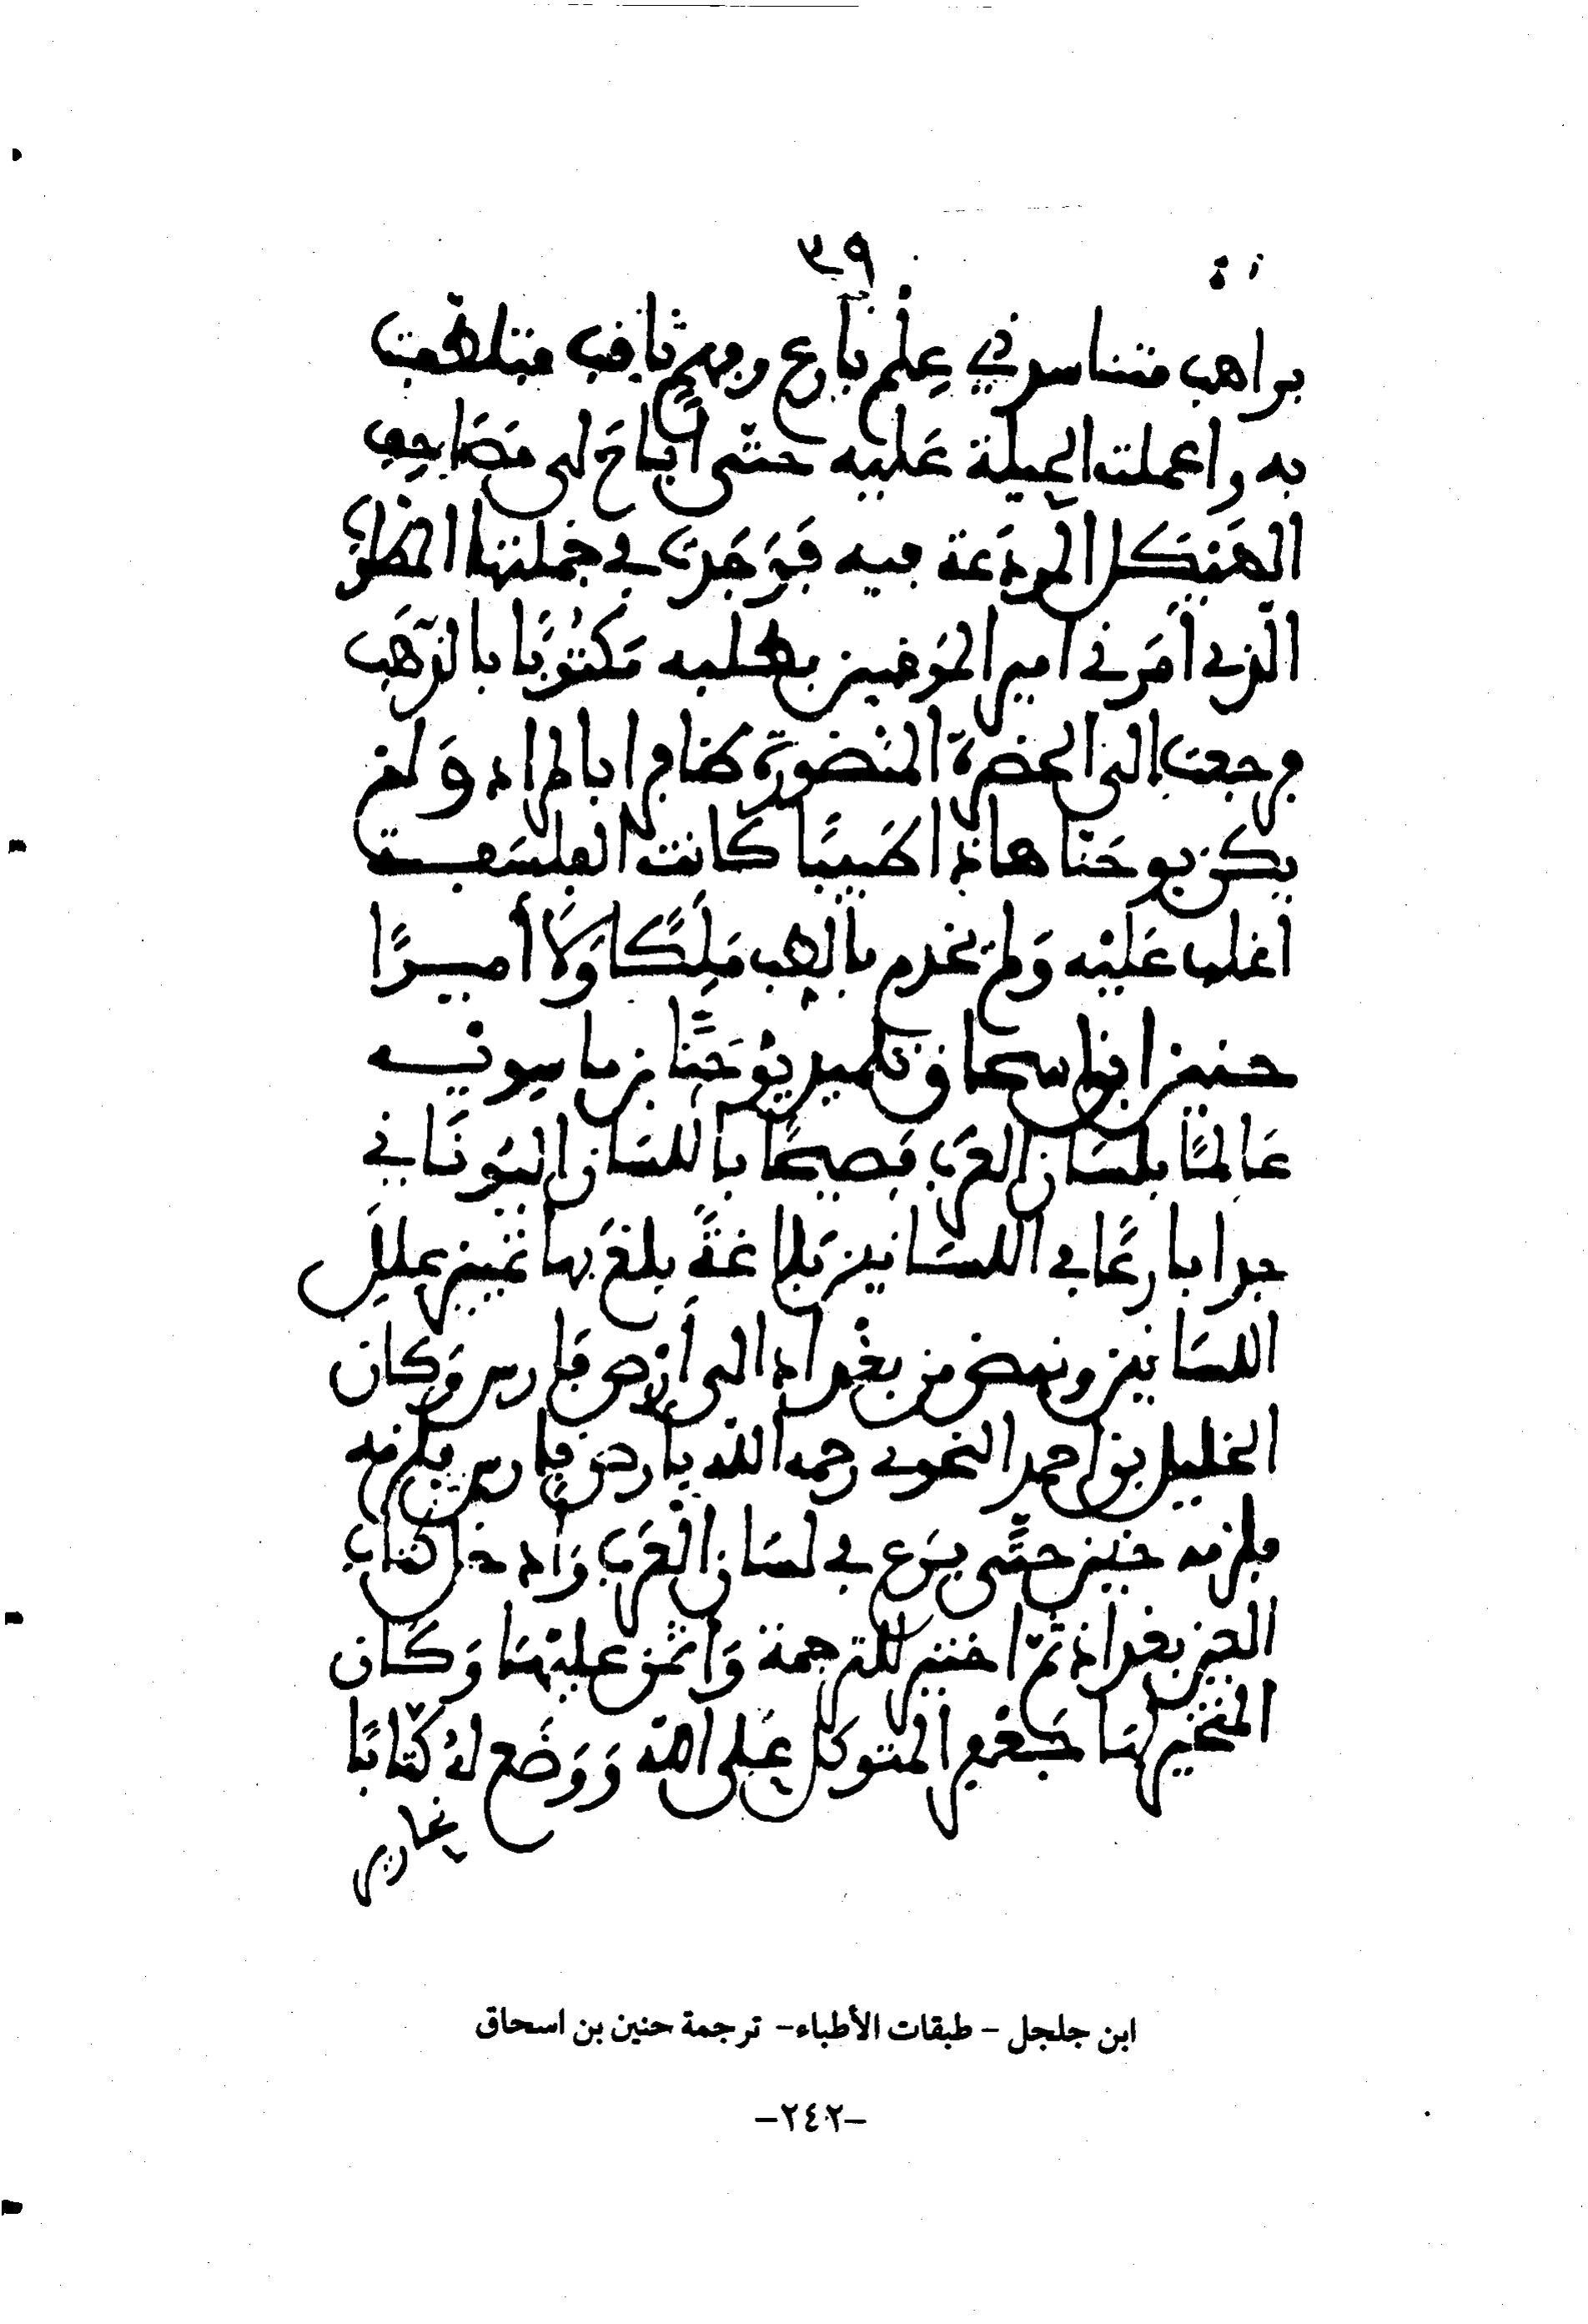 ٣٩
براهب متناسك ذي علم بارع وفهم ثاقب فتلطفت
به واعملت الحيلة عليه حتّى أباحَ لى مَصَاحِف
الهَيْكل المودَعة فيه فَوَجَدت في جُملتها المطلوب
الّذي أمَرني امير المؤمنين بطلبه مَكتُوبًا بالذّهَب
فرجعت إلى الحضرة المنْصُورة ظافرا بالمراد وَلم
يكن يوحَنّا هاذا طَبيبًا كانت الفلسَفـــة
اغلب عَليْه وَلم يخدم بالطب مَلِكًا وَلَا أميــرًا
حنين ابن اسحاق تلميذ يُوحَنَّا بن ماسِويــه
عَالمًا بلسَان العرَب فصيحًا باللسَان اليُونَاني
جدا بارعًا في اللسَانين بَلاغَةً بلغَ بها تمييز علل
اللسَانين ونهض من بغْداد الى أرْض فارس وَكان
الخليل بن احمد النحوي رحمه اللّه بأرض فارس
فلزمه حنين حتّى برَع في لسَان العرَب وَادخل كتاب
العين بغداد ثمّ اختير للترجمة وَائتمن عليْهَا وَكَان
المتخيّر لهَا جَعْفر المتوكل عَلى الله وَوَضَع لهُ كتّابًا
نحارير
ابن جلجل - طبقات الأطباء- ترجمة حنين بن اسحاق
-٢٤٠٢-